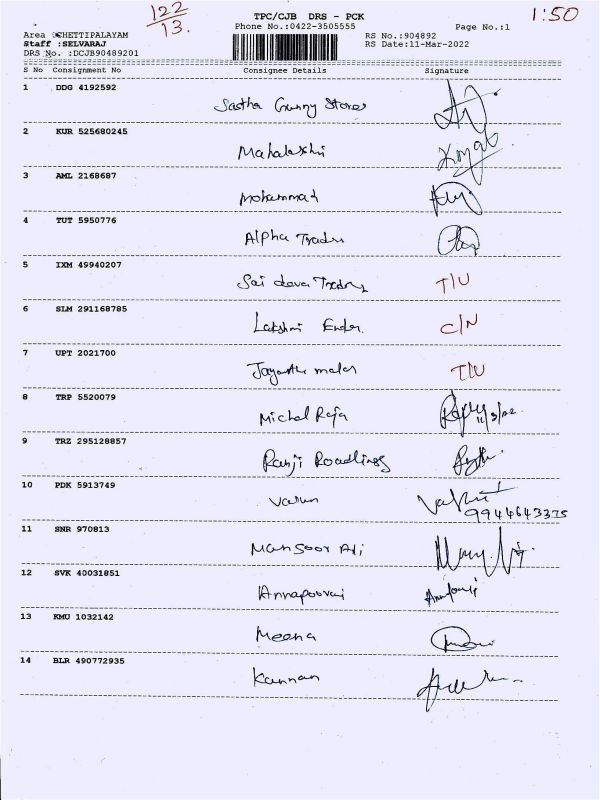 122/13.
1:50
TPC/CJB DRS - PCK
Phone No.:0422-3505555
Page No.:1
Area :CHETTIPALAYAM
RS No.:904892
Staff :SELVARAJ
RS Date:11-Mar-2022
DRS No. :DCJB90489201
S No Consignment No Consignee Details Signature
1 DDG 4192592
Sastha Gunny Stores
2 KUR 525680245
Mahalakshmi
3 AML 2168687
Mohammad
4 TUT 5950776
Alpha Traders
5 IXM 49940207
Sai deva Traders T/U
6 SLM 291168785
Lakshmi Enter. C/N
7 UPT 2021700
Jayantha malar T/U
8 TRP 5520079
Michal Raja 11/3/22
9 TRZ 295128857
Ranji Roadlings
10 PDK 5913749
Varun
9944643375
11 SNR 970813
Mansoor Ali
12 SVK 40031851
Annapoorani
13 KMU 1032142
Meena
14 BLR 490772935
Kannan